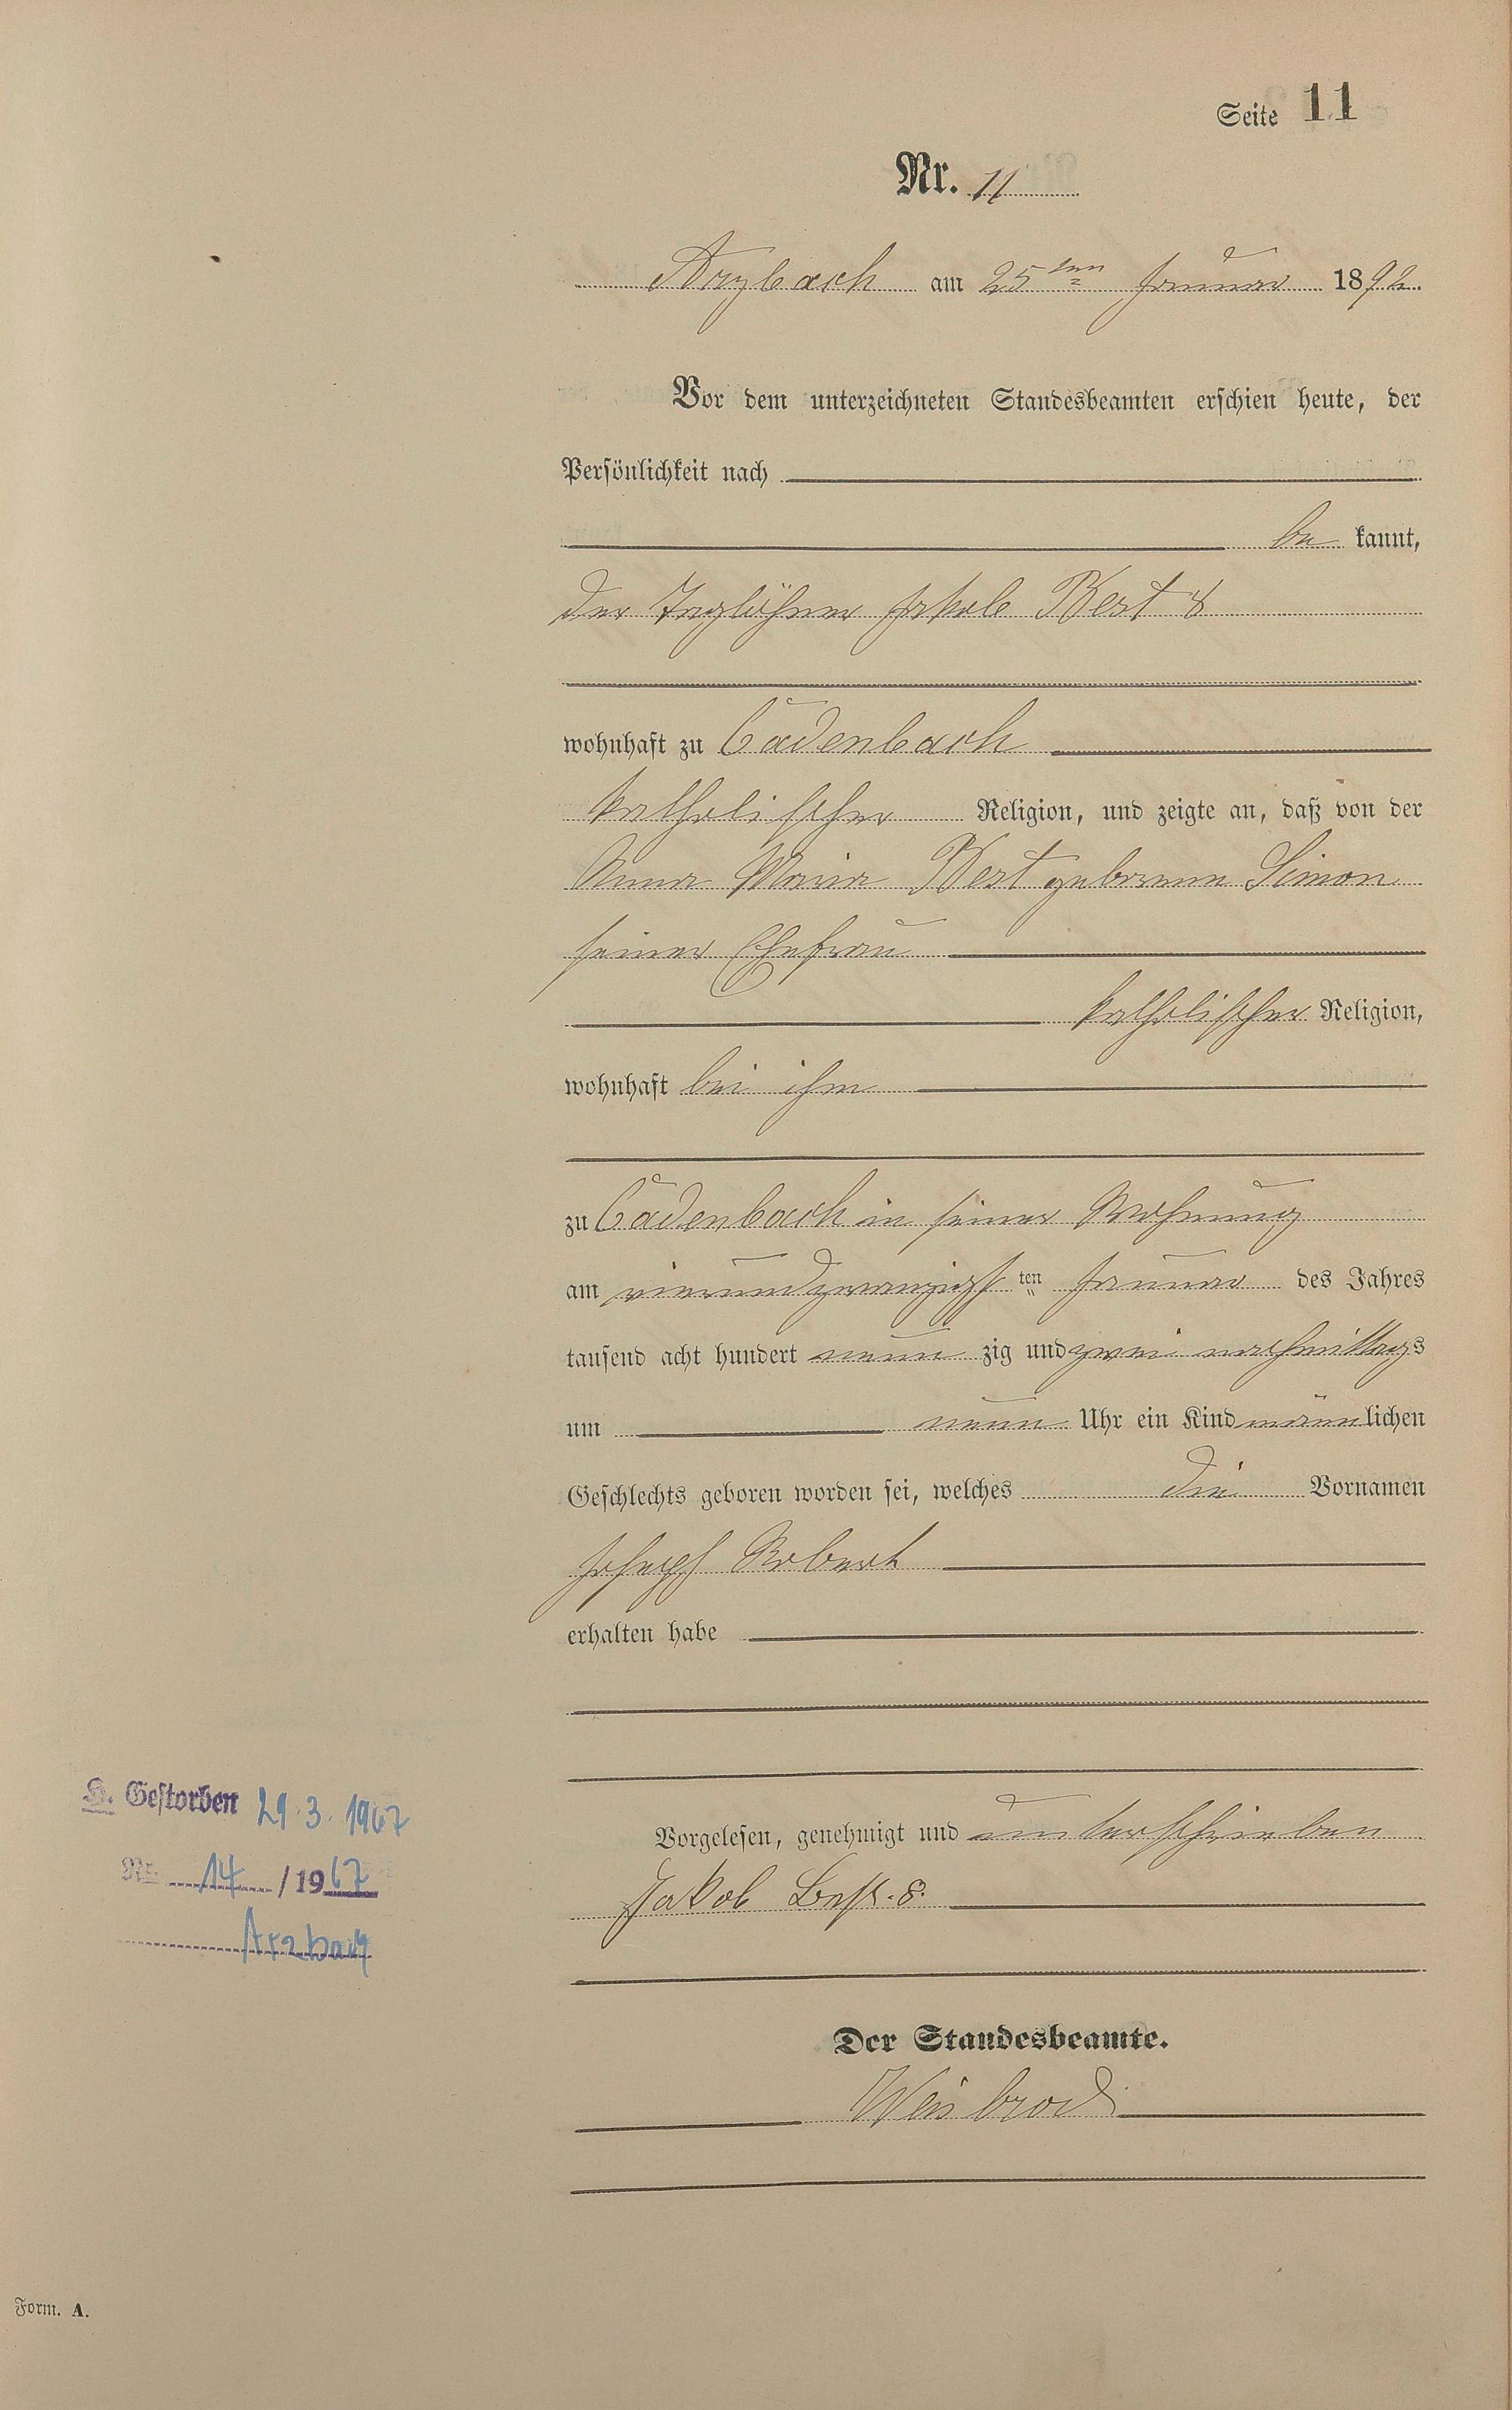 Seite 11
Nr. 11
Arzbach am 25ten Januar 1892.
Vor dem unterzeichneten Standesbeamten erschien heute, der
Persönlichkeit nach
be kannt,
der Taglöhner Jakob Best 8
wohnhaft zu Cadenbach
katholischer Religion, und zeigte an, daß von der
Anna Maria Best geborenen Simon
seiner Ehefrau
katholischer Religion,
wohnhaft bei ihm
zu Cadenbach in seiner Wohnung
am vierundzwanzigsten Januar des Jahres
tausend acht hundert neun zig und zwei nachmittags
um neun Uhr ein Kind männlichen
Geschlechts geboren worden sei, welches die Vornamen
Joseph Robert
erhalten habe
Vorgelesen, genehmigt und unterschrieben
Jakob Best. 8.
Der Standesbeamte.
Weisbrod
Gestorben 29.3.1967
Nr. 14 / 1967
Arzbach
Form. A.